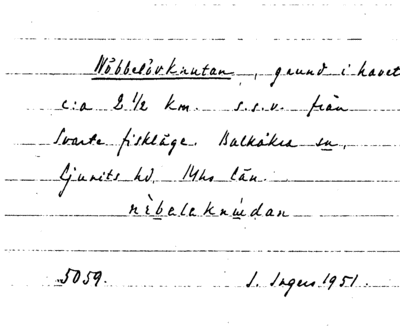 Nöbbelövknutan, grund i havet
c:a 2 1/2 km. s.s.v. från
Svarte fiskläge. Balkåkra sn,
Ljunits hd. Mhs län.
5059. I. Ingers 1951.